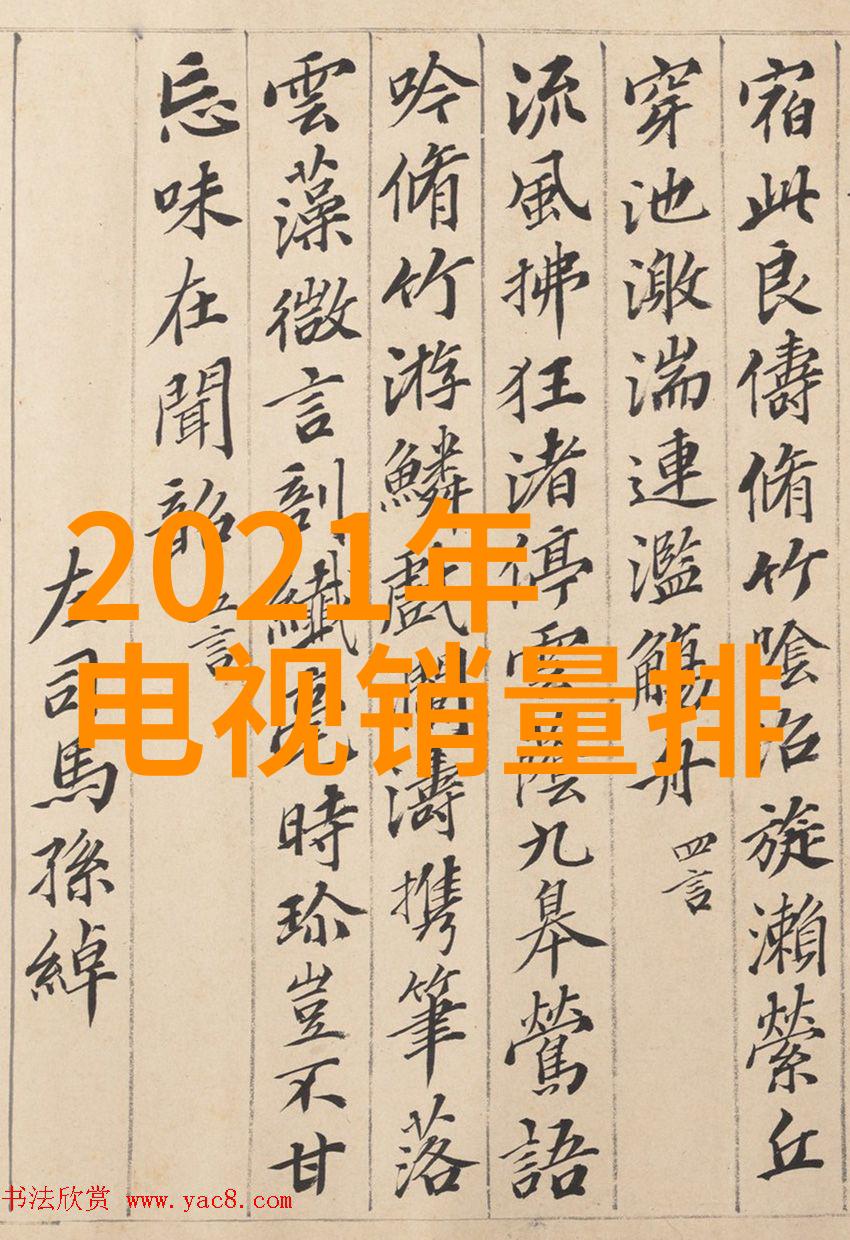 宿此良儔脩竹陰沼旋瀨縈丘
穿池激湍連濫觴舟 四言
流風拂枉渚停雲蔭九皋鶯語
吟脩竹游鱗戲瀾濤携筆落
雲藻微言剖纖毫時珍豈不甘
忘味在聞韶 五言
左司馬孫綽
2021年
电视销量排
书法欣赏 www.yac8.com